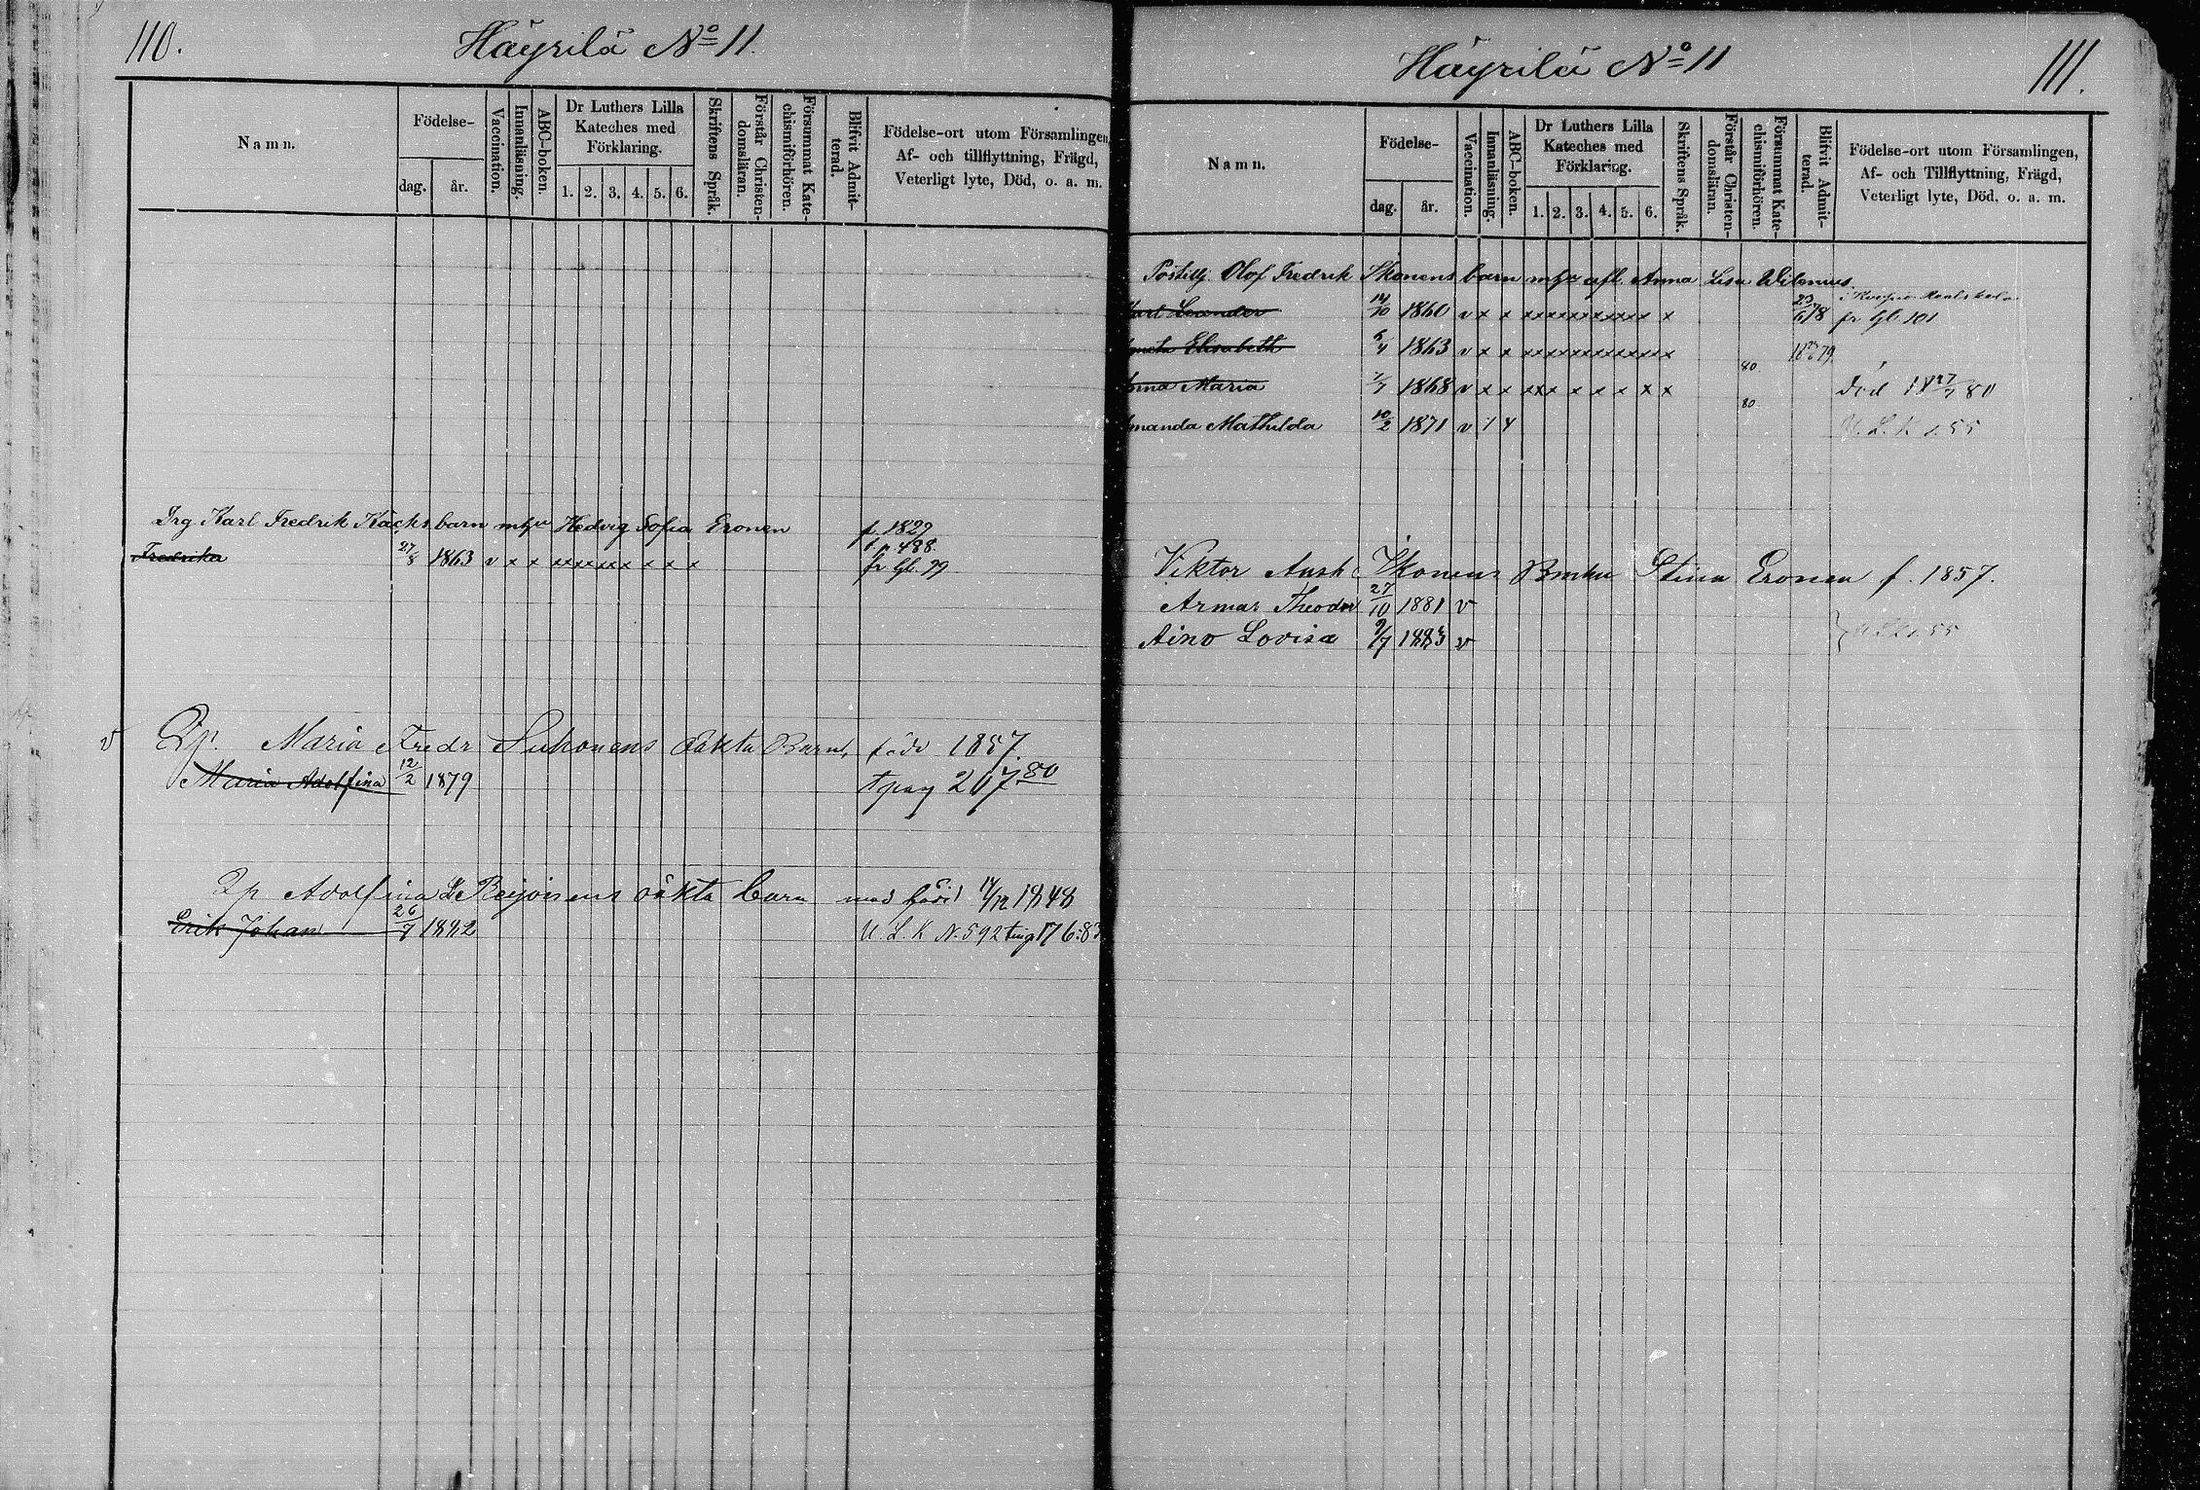 110.
Häyrilä No 11
Namn.
Födelse-
dag.
år.
Vaccination.
Innanläsning.
ABC-boken.
Dr Luthers Lilla
Kateches med
Förklaring.
1. 2. 3. 4. 5. 6.
Skriftens Språk.
Förstår Christen-
domsläran.
Försummat Kate-
chismiförhören.
Blifvit Admit-
terad.
Födelse-ort utom Församlingen
Af- och tillflyttning, Frägd,
Veterligt lyte, Död, o. a. m.
Karl Fredrik barn Hedvig Sofia Eronen f. 1829
t. p. 488
Fredrika 27/8 1863 v x x x x x x x x x x x fr Gl. 99
v
Maria Fredr Suhonens oäkta Barn, född 1857
Maria Adolfina 12/2 1879 t pag 207 80
Adolfina oäkta barn med född 14/12 1848
Erik Johan 26/7 1882 U. L. K N. 592 176:83
Häyrilä No 11
111.
Namn.
Födelse-
dag.
år.
Vaccination.
Innanläsning.
ABC-boken.
Dr Luthers Lilla
Kateches med
Förklaring.
1. 2. 3. 4. 5. 6.
Skriftens Språk.
Förstår Christen-
domsläran.
Försummat Kate-
chismiförhören.
Blifvit Admit-
terad.
Födelse-ort utom Församlingen,
Af- och Tillflyttning, Frägd,
Veterligt lyte, Död, o. a. m.
Olof Fredrik Ikonens barn afl. Anna Lisa
i Kuopio Realskola
Leander 14/10 1860 v x x x x x x x x x x x x x x x 23/6 78 fr Gl. 101
Elisabeth 6/4 1863 v x x x x x x x x x x x x x x x 79
80
Maria 1868 v x x x x x x x x x x x död 18 27/7 80
80
Mathilda 10/2 1871 v U. L. K s. 55
Viktor Ikonens Stina Eronen f. 1857.
Armas Theodor 27/10 1881 v
Aino Lovisa 9/7 1883 v